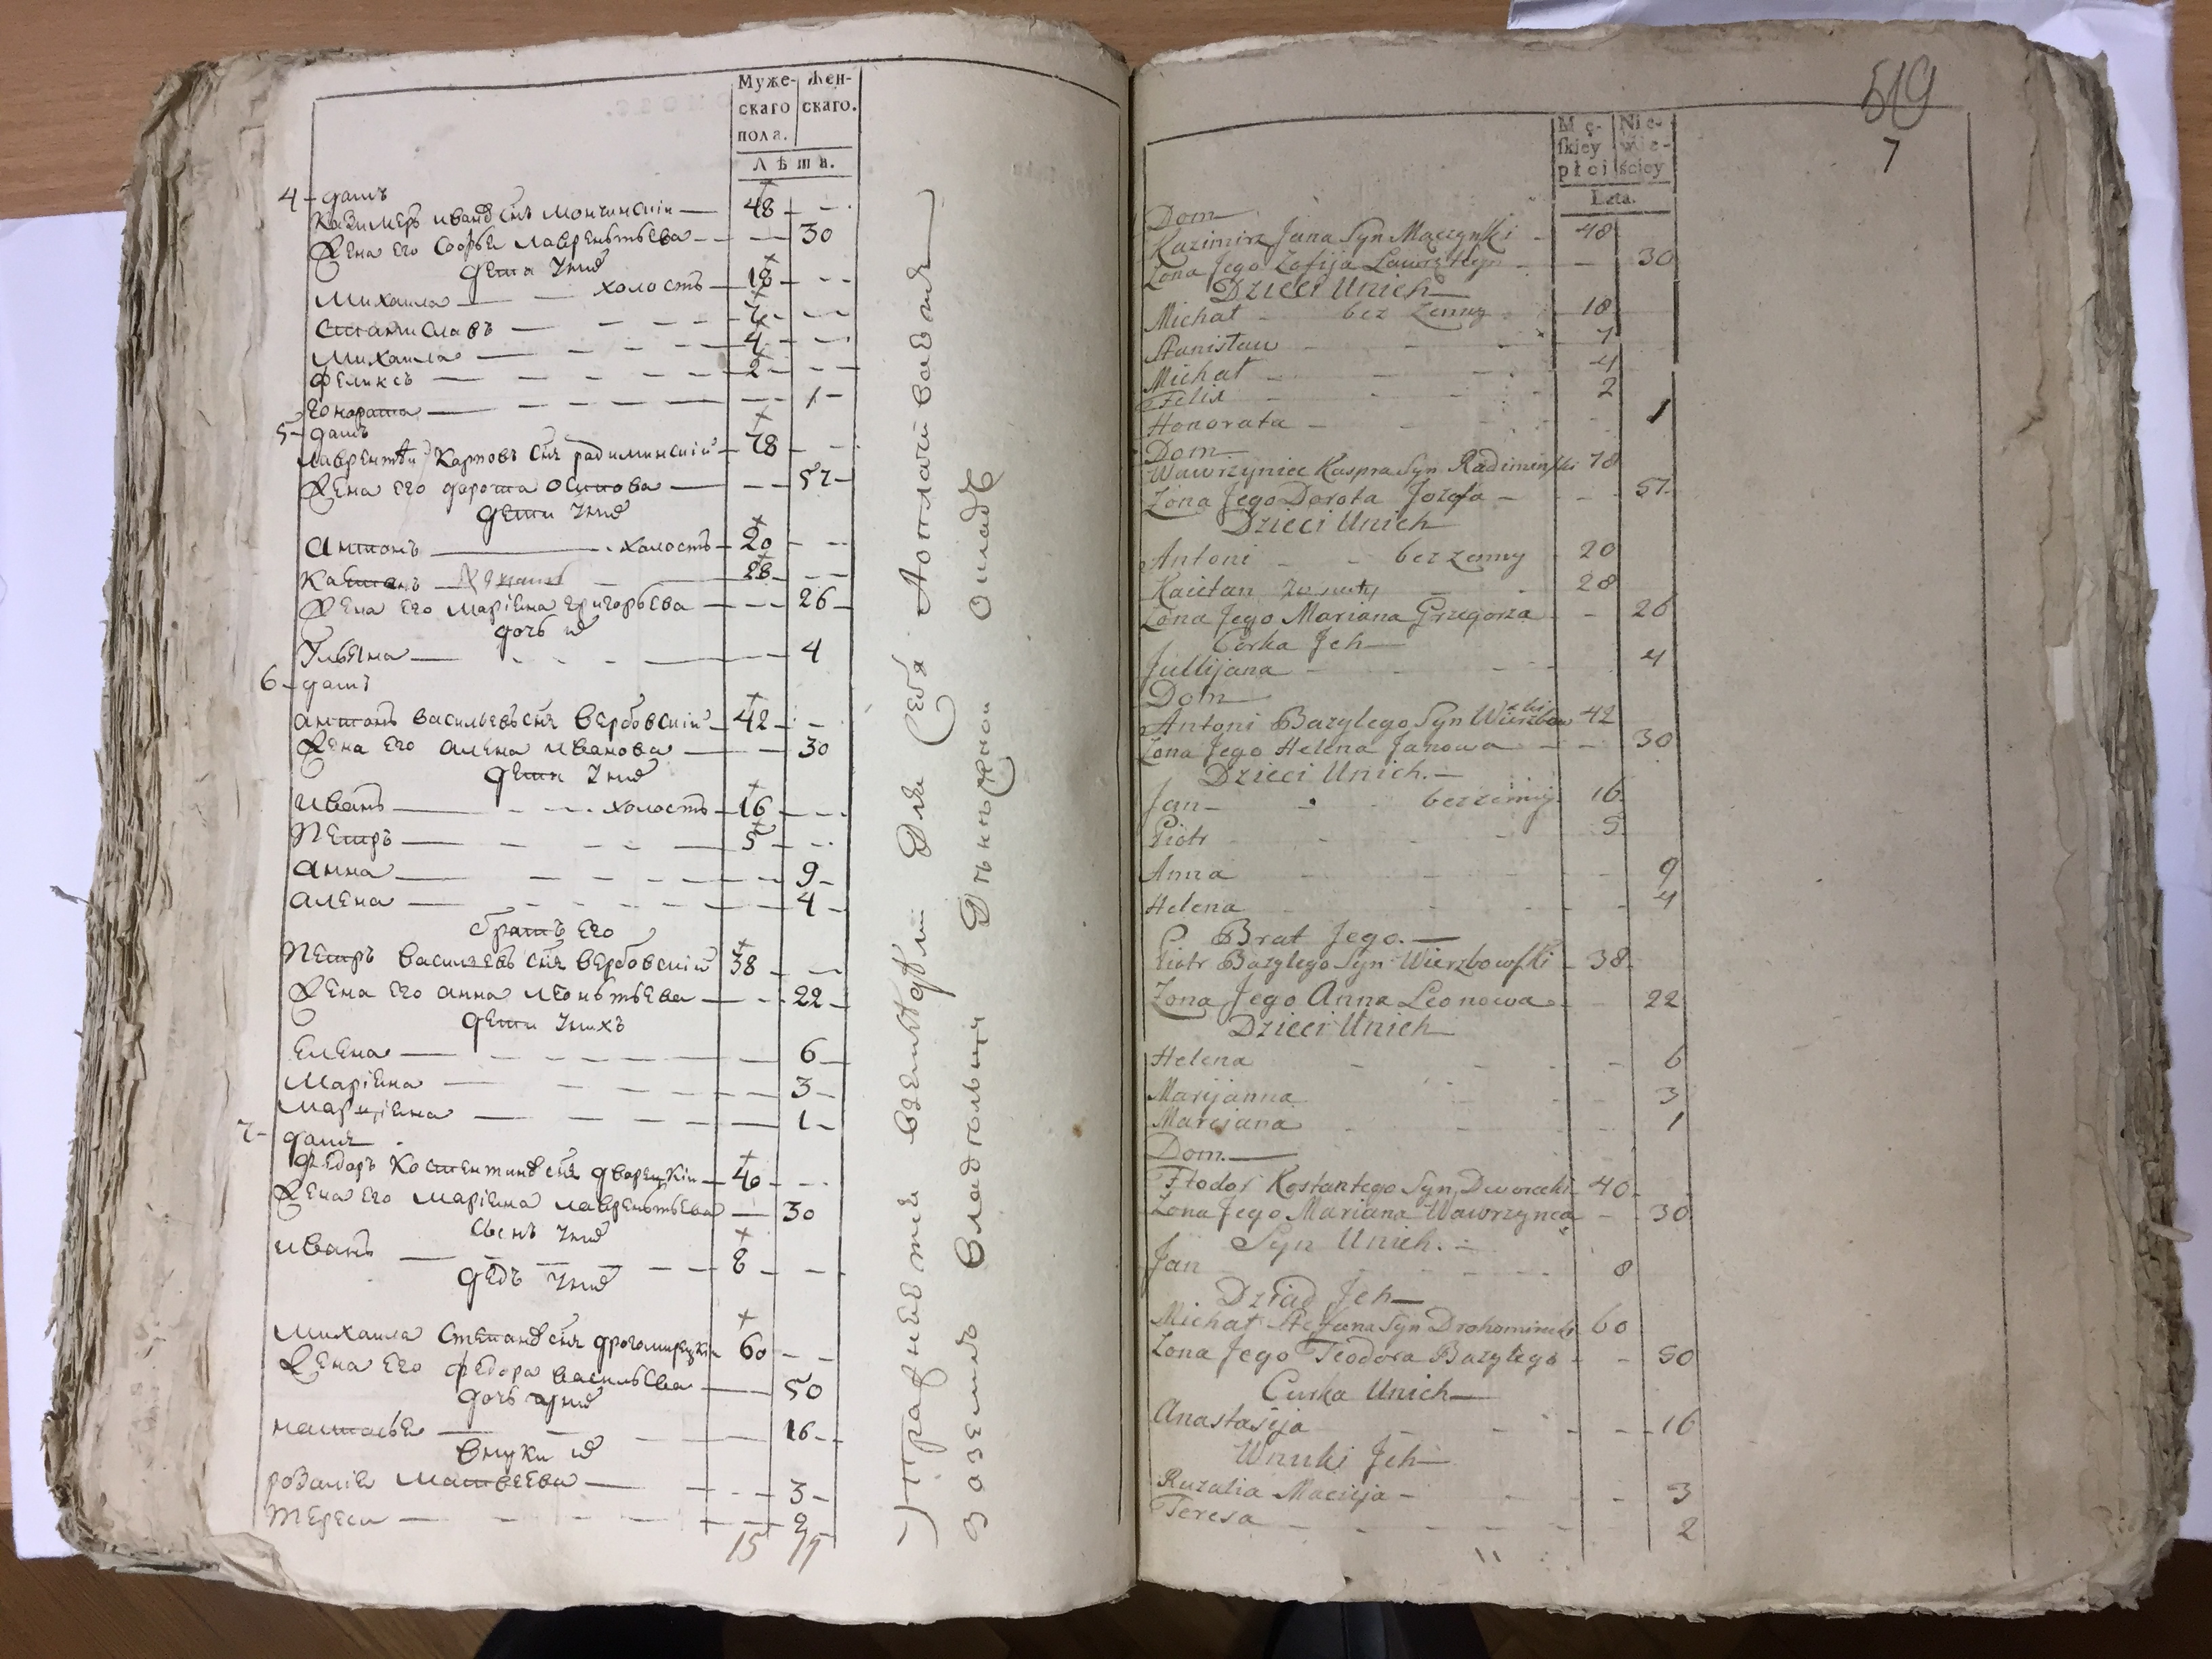 Муже- Жен-
скаго скаго.
пола.
Лѣта.
4 - домъ
Казимеръ Ивановъ снъ Мончинскiи — 48 - -
Жена его Софья Лаврентьева - - 30
дети у нихъ
Михаила — холостъ — 18 - -
Станиславъ — 7 - -
Михаила — 4 - -
Феликсъ — 2 - -
Гонората — 1 -
5 - домъ
Лаврентѣи Карповъ снъ Радиминскiй — 78 - -
Жена его Дорота Осипова — 57 -
дети у нихъ
Антонъ — холостъ - 20 - -
Каетанъ — 28 - -
Жена его Марiана Григорьева — 26 -
дочь их
Ульяна — 4
6 - домъ
Антонъ Васильевъ снъ Вербовскiй - 42 - -
Жена его Алена Иванова — 30
дети у нихъ
Иванъ — холостъ - 16 - -
Петръ — 5 - -
Анна — 9 -
Алена — 4 -
братъ его
Петръ Васильевъ снъ Вербовскiй 38 - -
Жена его Анна Леонтьева — 22 -
дети у нихъ
Елена — 6 -
Марiана — 3 -
Марцiана — 1 -
7 - домъ
Федоръ Костентиновъ снъ Дворецкiи - 40 - -
Жена его Марiана Лаврентьева — 30
сынъ у нихъ
Иванъ — 8 - -
дедъ у нихъ
Михаила Степановъ снъ Дрогомирецкiи 60 - -
Жена его Федора Васильева — 50
дочь у них
Настасья — 16 -
внуки их
Розалiя Матвеева — 3 -
Тереса — 2
15 19
Для себя
За землю Владельцу
519
7
Mę- Nie-
skiey wie-
płci ściey
Lata.
Dom
Kazimirz Jana Syn Mączynski - 48
Żona Jego Zofija Lawrętego - - 30
Dzieci Unich
Michał - bez Żenny - 18
Stanisław - 7
Michał - 4
Felix - 2
Honorata - 1
Dom
Wawrzyniec Kaspra Syn Radiminski 78
Żona Jego Dorota Jozefa - - 57
Dzieci Unich
Antoni - bez żenny - 20
Kaietan żonaty 28
Żona Jego Mariana Grzegorza - - 26
Corka Jch
Jullijana - 4
Dom
Antoni Bazylego Syn Wierzbowski 42
Żona Jego Helena Janowa - - 30
Dzieci Unich.
Jan - bez żenny 16
Piotr - 5
Anna - 9
Helena - 4
Brat Jego.
Piotr Bazylego Syn Wierzbowski - 38
Żona Jego Anna Leonowa - 22
Dzieci Unich
Helena - 6
Marijanna - 3
Marcjana - 1
Dom.
Fiodor Kostantego Syn Dworecki - 40
Żona Jego Mariana Wawrzynca - - 30
Syn Unich.
Jan - 8
Dziad Jch
Michał Stefana Syn Drohomirecki 60
Żona Jego Teodora Bazylego - - 50
Curka Unich
Anastasija - 16
Wnuki Jch
Ruzalia Macieja - 3
Teresa - 2